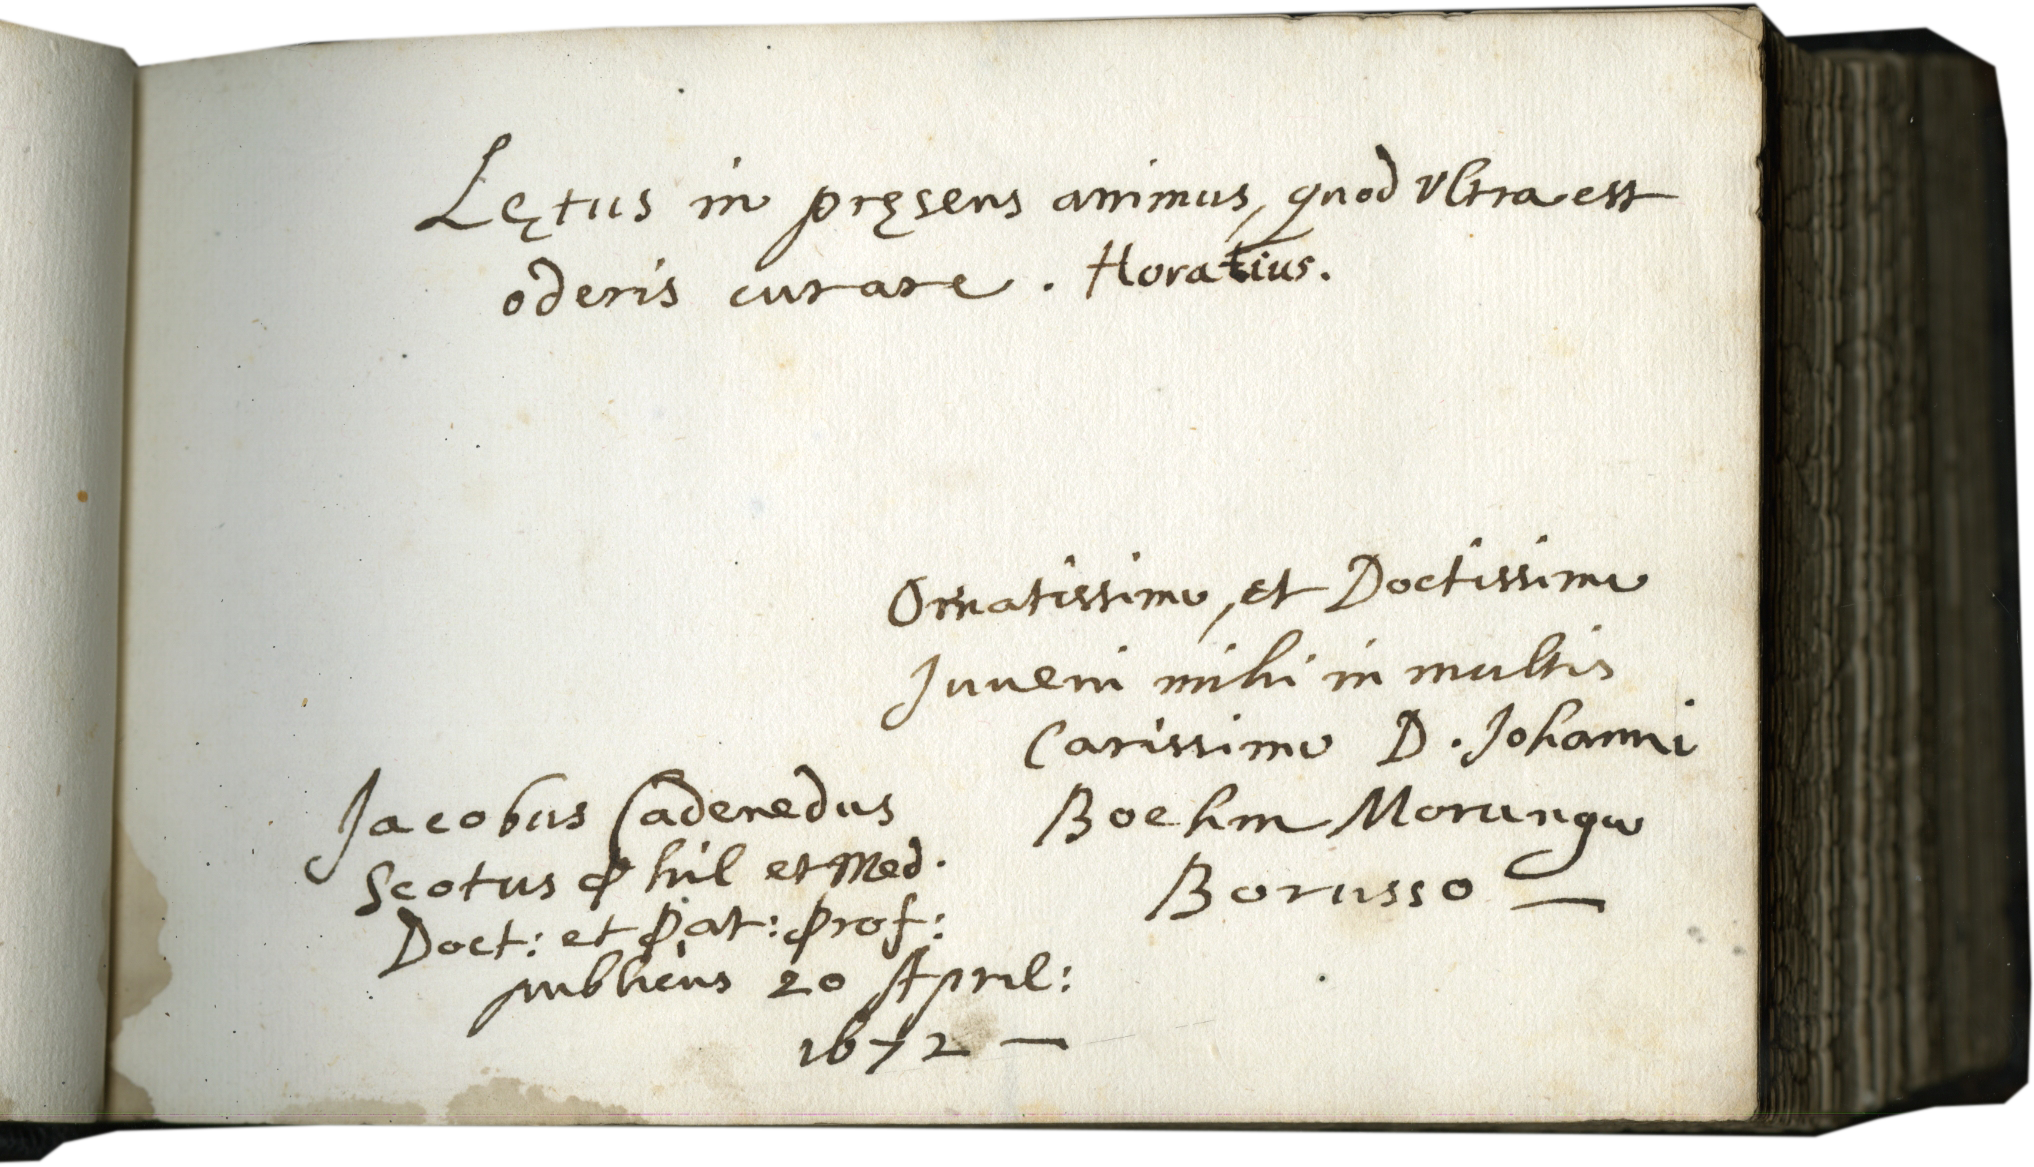 Lętus in pręsens animus, quod Vltra est
oderis curare. Horatius.
Ornatissimo, et Doctissimo
Juueni mihi in multis
Carissimo D. Johanni
Boehm Morungo
Borusso —
Jacobus Cadenedus
Scotus Phil et Med.
Doct: et Pat: Prof:
publicus 20 April:
1672 —